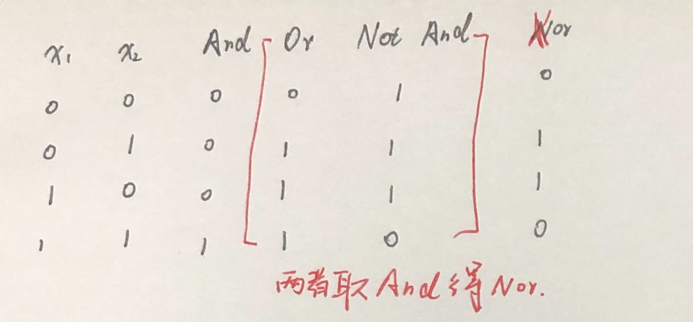 x₁ x₂ And Or Not And Xor
0 0 0 0 1 0
0 1 0 1 1 1
1 0 0 1 1 1
1 1 1 1 0 0
两者取And得Nor.